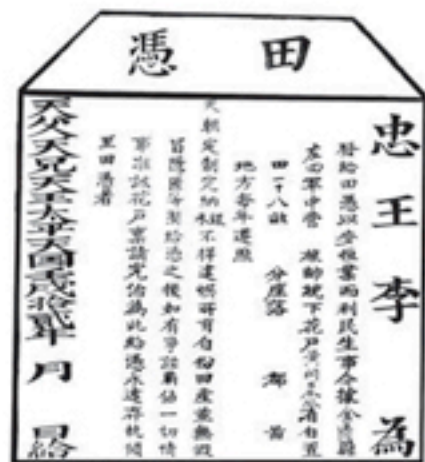 田憑
忠王李 為
發給田憑以安恒業而利民生事今據金匱縣
左四軍中營 旅帥統下花戶黃 自置
田一十八畝 分座落 都 啚
地方每年遵照
天朝定制完納 不得違誤所有自份田產並無假
冒隱匿等弊給憑之後如有爭訟霸佔一切情
事准該花戶稟請究治為此給憑永遠存執須
至田憑者
天父天兄天王太平天國壬戌拾貳年 月 日給